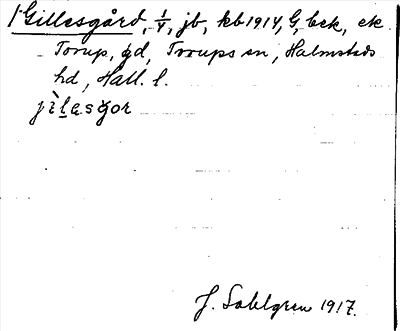 1 Gillesgård, 1/4, jb, kb 1914, G, bek, ek
Torup, gd, Torups sn, Halmstads
hd, Hall. l.
jìlasgor
J. Sahlgren 1917.